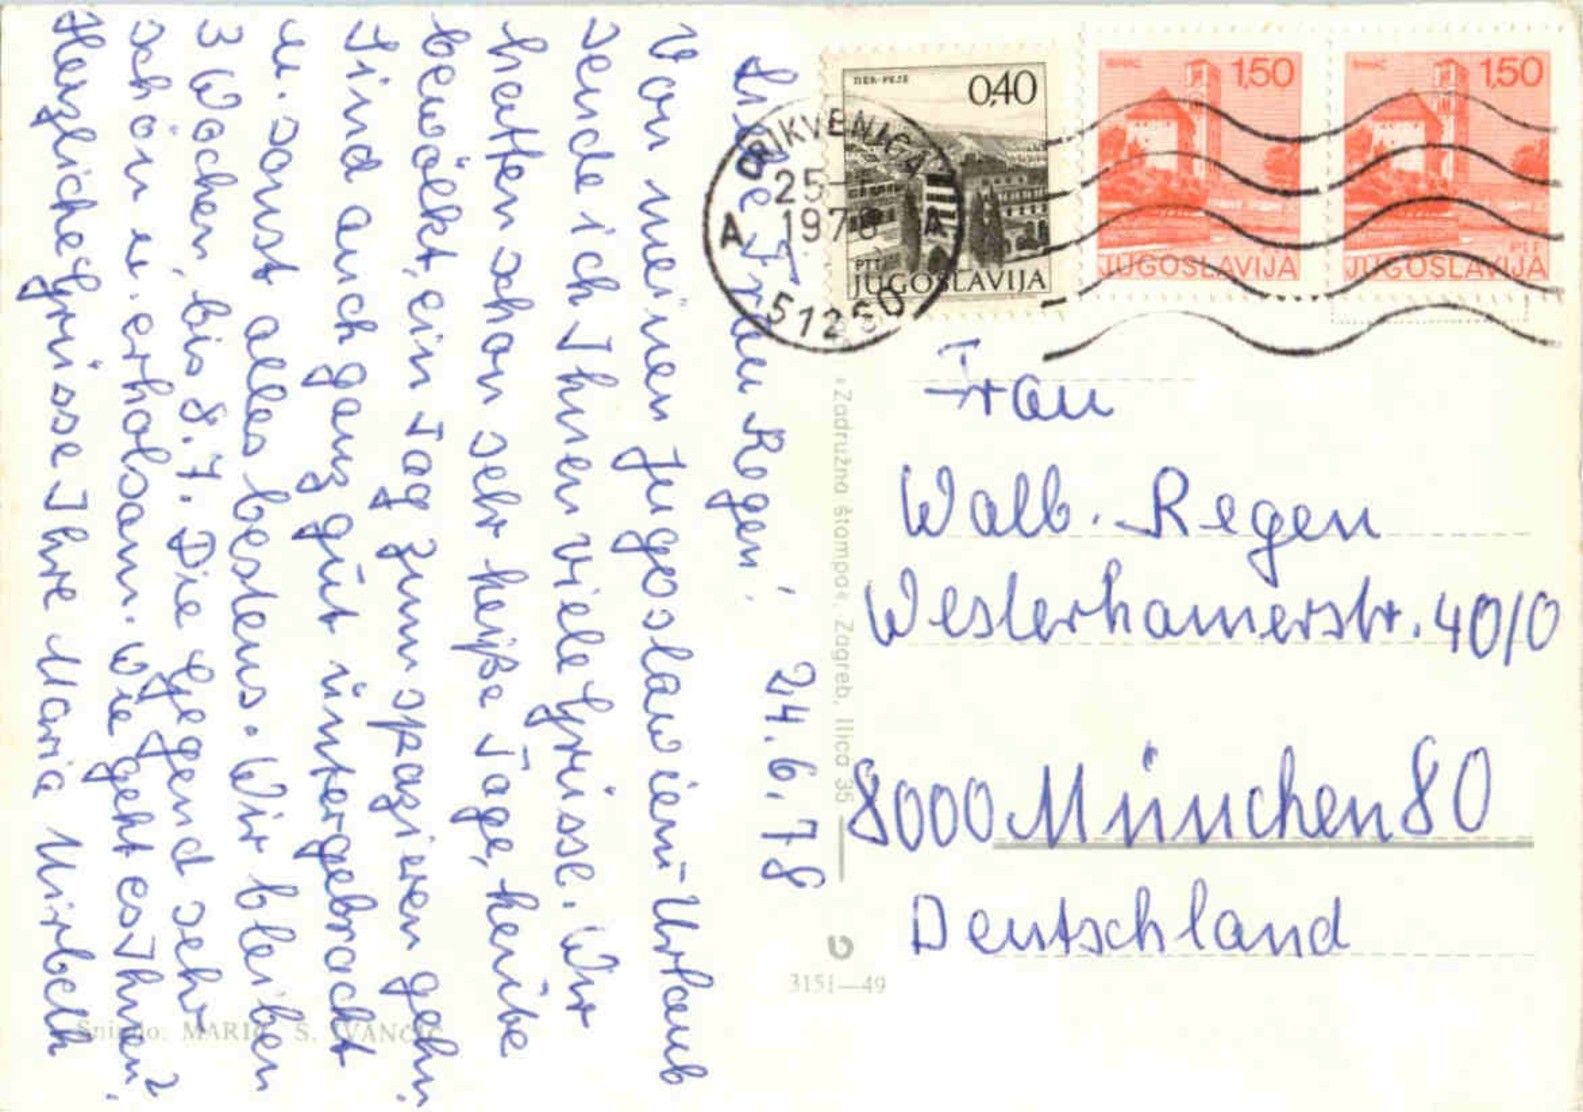 24.6.78
Liebe Frau Regen!
Von meinen Jugoslawien-Urlaub
sende ich Ihnen viele Grüsse. Wir
hatten schon sehr heiße Tage, heute
bewölkt, ein Tag zum spazieren gehn.
Sind auch ganz gut untergebracht
u. sonst alles bestens. Wir bleiben
3 Wochen, bis 8.7. Die Gegend sehr
schön u. erholsam. Wie geht es Ihnen?
Herzliche Grüsse Ihre Maria
CRIKVENICA
25
1978
A A
51260
0,40
PTT
JUGOSLAVIJA
1,50
JUGOSLAVIJA
1,50
PTT
JUGOSLAVIJA
Frau
Walb. Regen
Westerhamerstr. 40/0
8000 München 80
Deutschland
»Zadružna štampa«, Zagreb, Ilica 35
3151—49